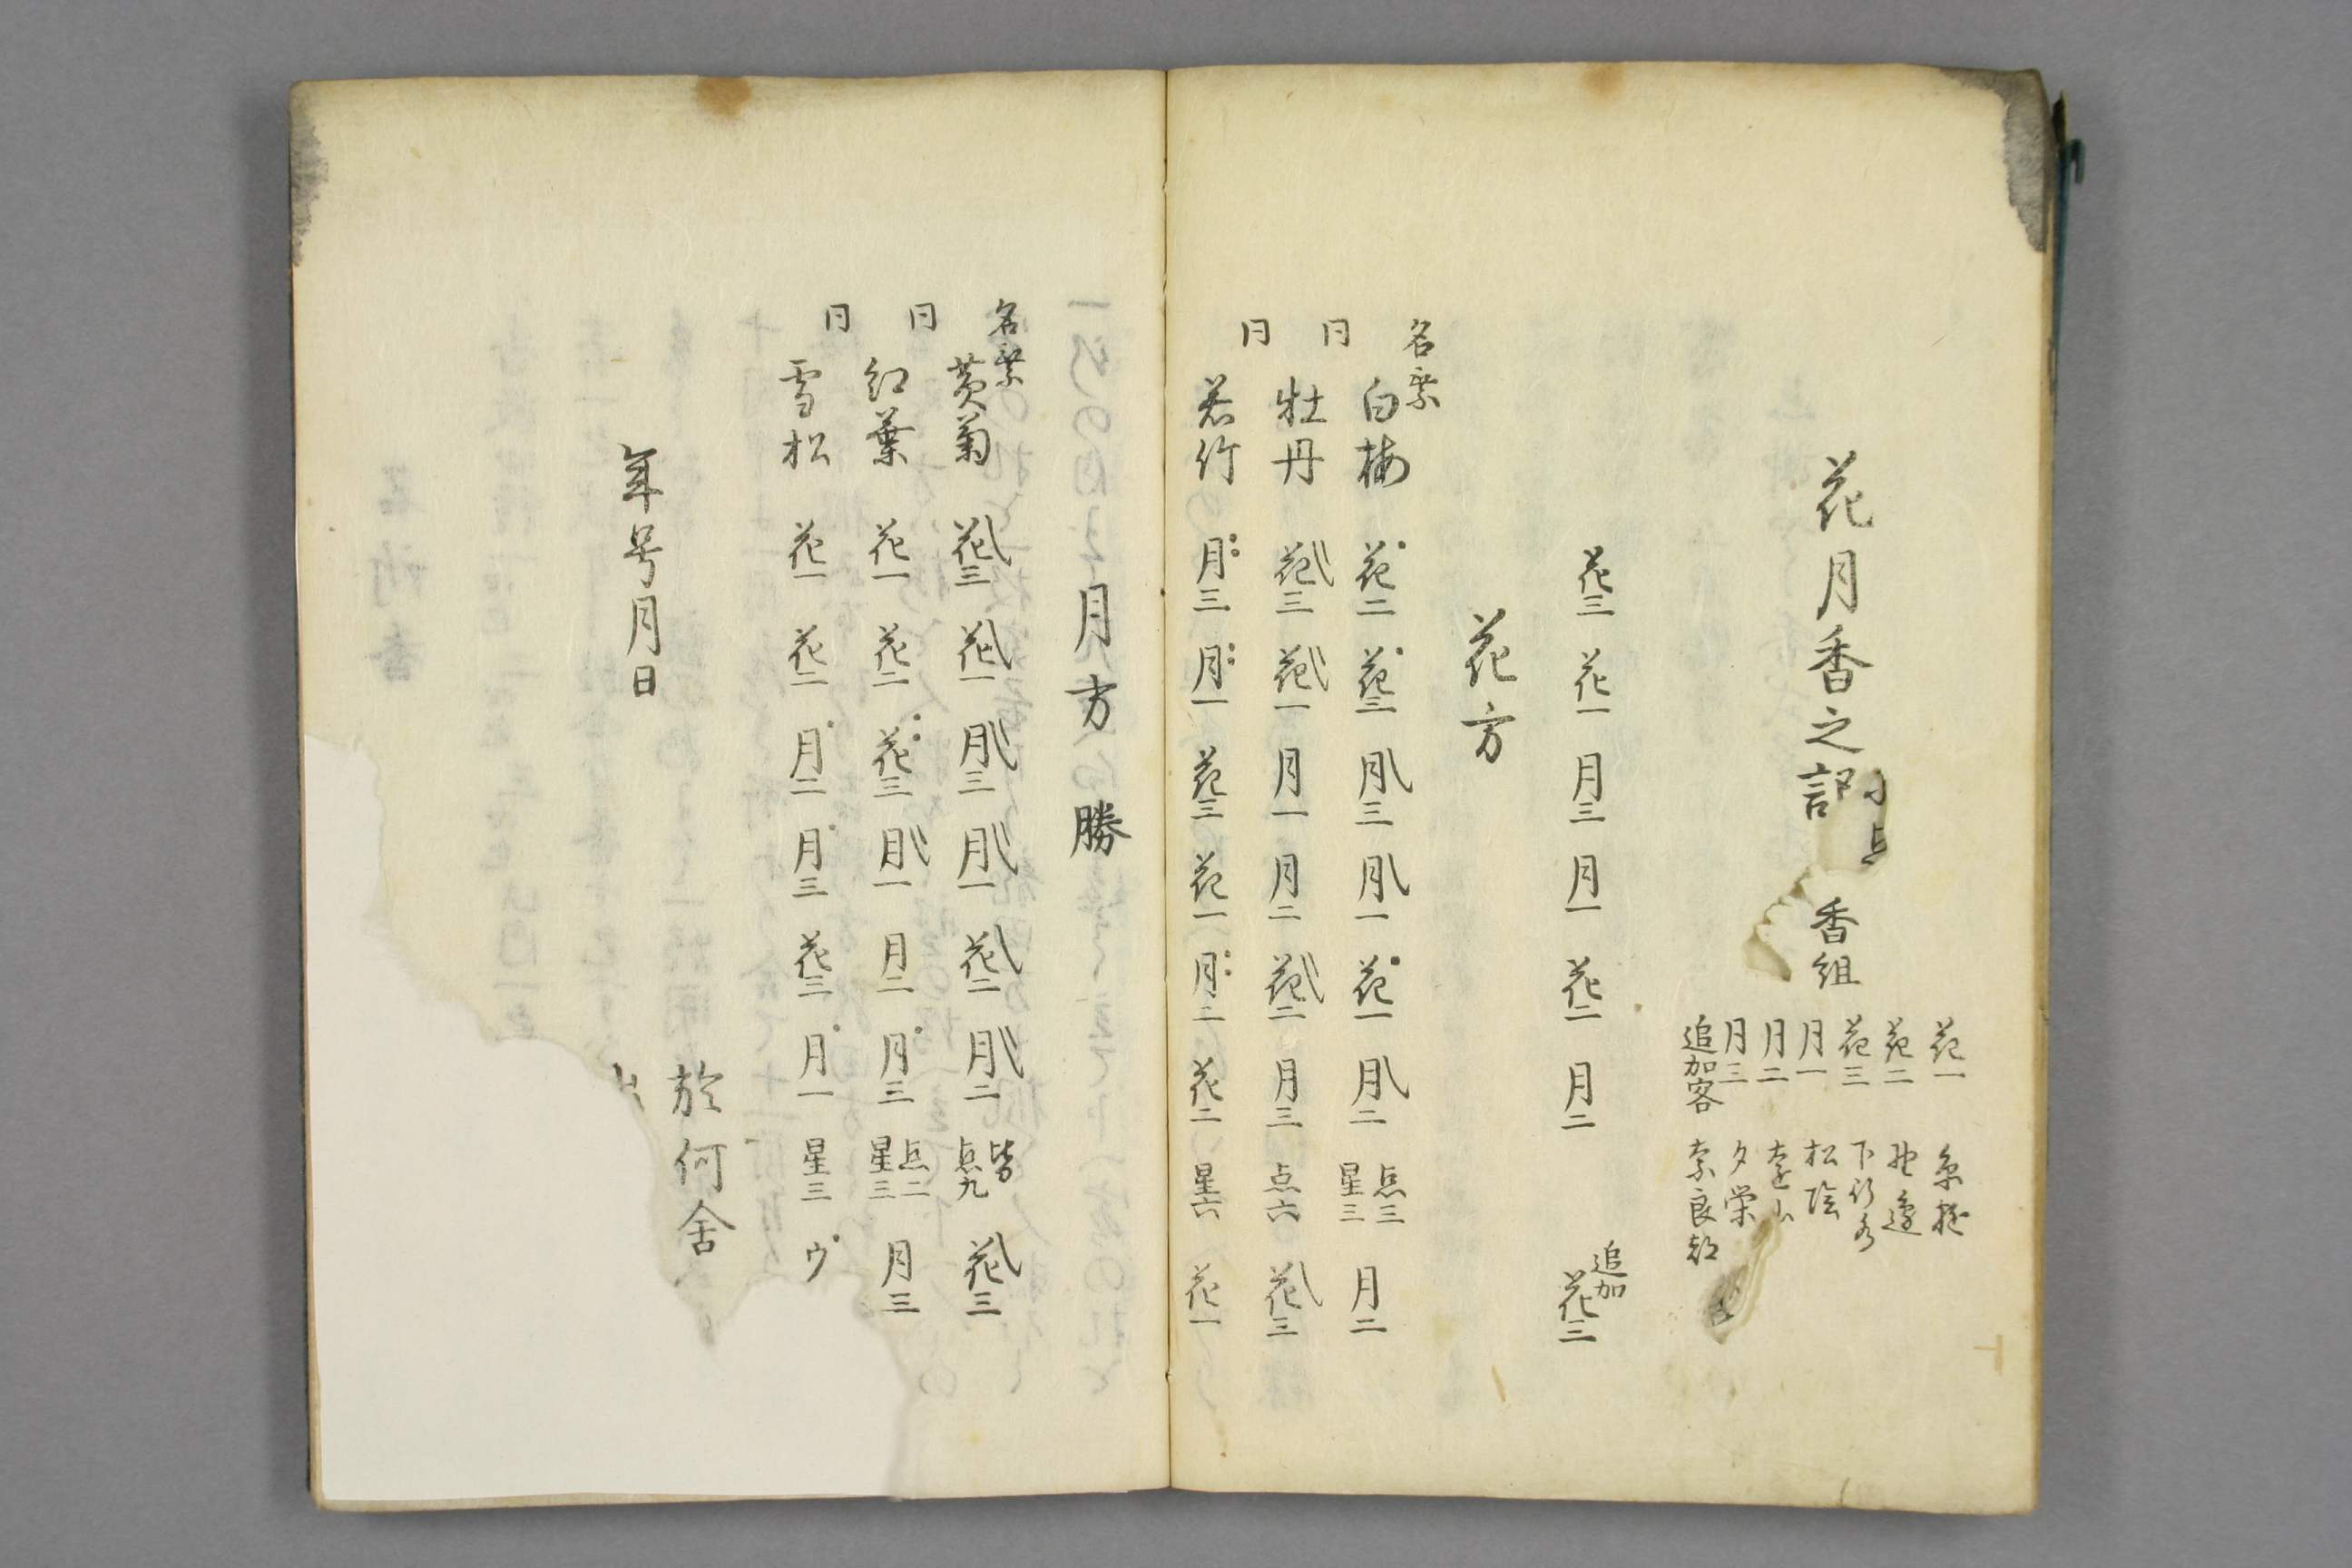 花月香之記
香組
花一
花二
花三 下行水
月一 松陰
月二 遠山
月三 夕栄
追加客 奈良都
花三 花一 月三 月一 花二 月二 追加 花三
花方
名乗 白梅 花二 花三 月三 月一 花一 月二 点三 星三 月二
同 牡丹 花三 花一 月一 月二 花二 月三 点六 花三
同 若竹 月三 月一 花三 花一 月二 花二 星六 花一
月方 勝
名乗 黄菊 花三 花一 月三 月一 花二 月二 皆 点九 花三
同 紅葉 花一 花二 花三 月一 月二 月三 点二 星三 月三
同 雪松 花一 花二 月二 月三 花三 月一 星三 ウ
年号月日
於何舎